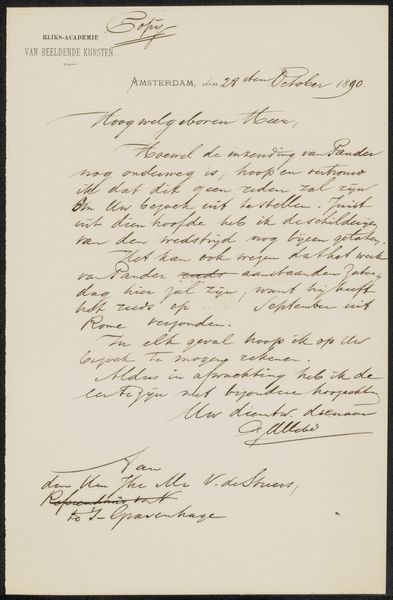 Copy
RIJKS-ACADEMIE
VAN BEELDENDE KUNSTEN.
AMSTERDAM, den 28sten October 1890.
Hoogwelgeboren Heer,
Hoewel de inzending van Pander
nog onderweg is, hoop en vertrouw
ik dat dit geen reden zal zijn
om Uw bezoek uit te stellen. Juist
uit dien hoofde heb ik de schilderijen
van den wedstrijd nog bijeen gelaten.
Het kan ook wezen dat het werk
van Pander reeds aanstaanden Zater-
dag hier zal zijn, want hij heeft
het reeds op ... September uit
Rome verzonden.
In elk geval hoop ik op Uw
bezoek te mogen rekenen.
Aldus in afwachting heb ik de
eer te zijn met bijzondere hoogachting
Uw dienstw. dienaar
A Allebé
Aan
den Jhr Mr V. de Stuers,
Referendaris
te 's-Gravenhage